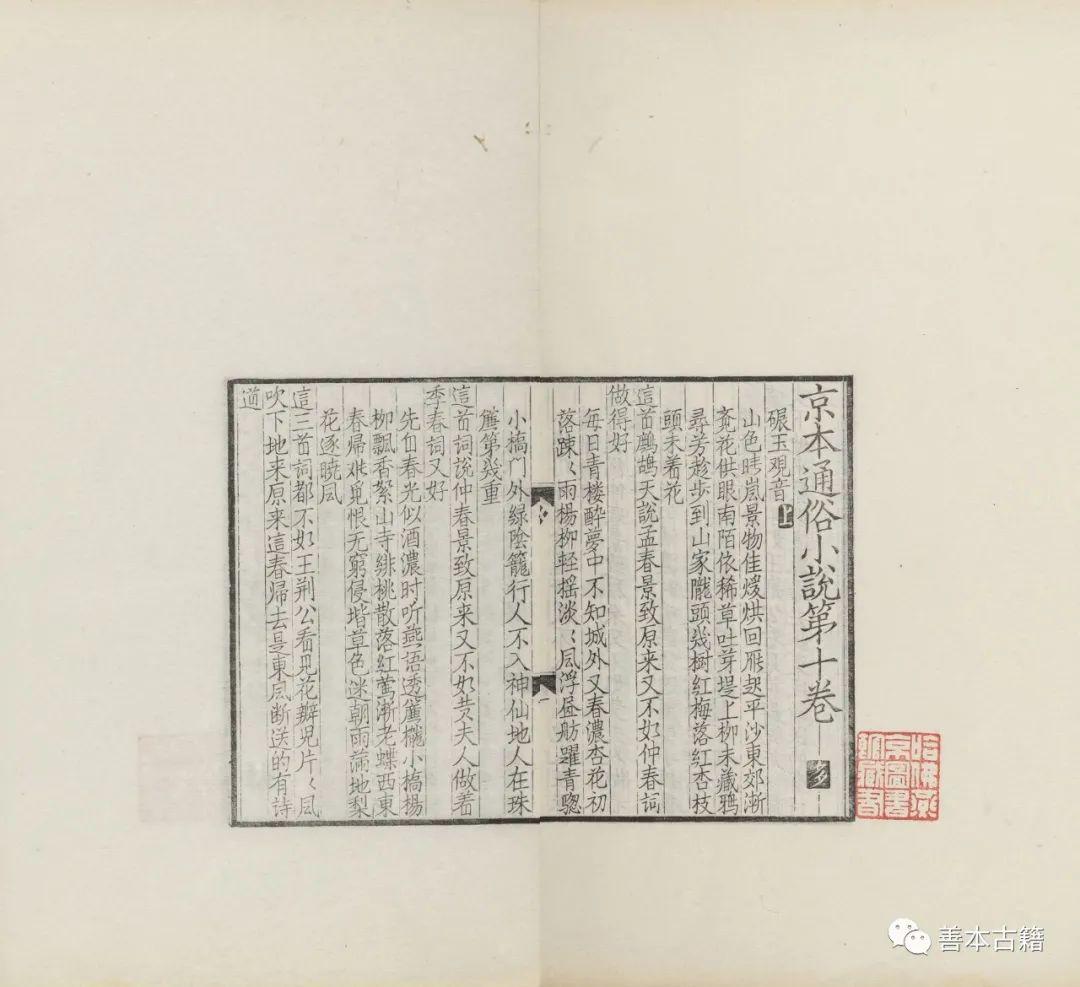 京本通俗小說第十卷
碾玉观音上
山色晴嵐景物佳煖烘回雁起平沙東郊漸
覺花供眼南陌依稀草吐芽堤上柳未藏鴉
尋芳趂步到山家隴頭幾树红梅落红杏枝
頭未着花
這首鷓鴣天說孟春景致原来又不如仲春詞
做得好
每日青楼醉夢中不知城外又春濃杏花初
落踈〻雨楊柳轻摇淡〻風浮昼舫躍青驄
小橋門外緑陰籠行人不入神仙地人在珠
簾第幾重
這首词說仲春景致原来又不如黄夫人做着
季春词又好
先自春光似酒濃时听燕语透簾櫳小橋楊
柳飄香絮山寺緋桃散落红莺渐老蝶西東
春歸难覓恨无窮侵堦草色迷朝雨滿地梨
花逐曉風
這三首词都不如王荆公看見花瓣児片〻風
吹下地来原来這春歸去是東風断送的有詩
道
哈佛燕
京圖書
館藏書
善本古籍